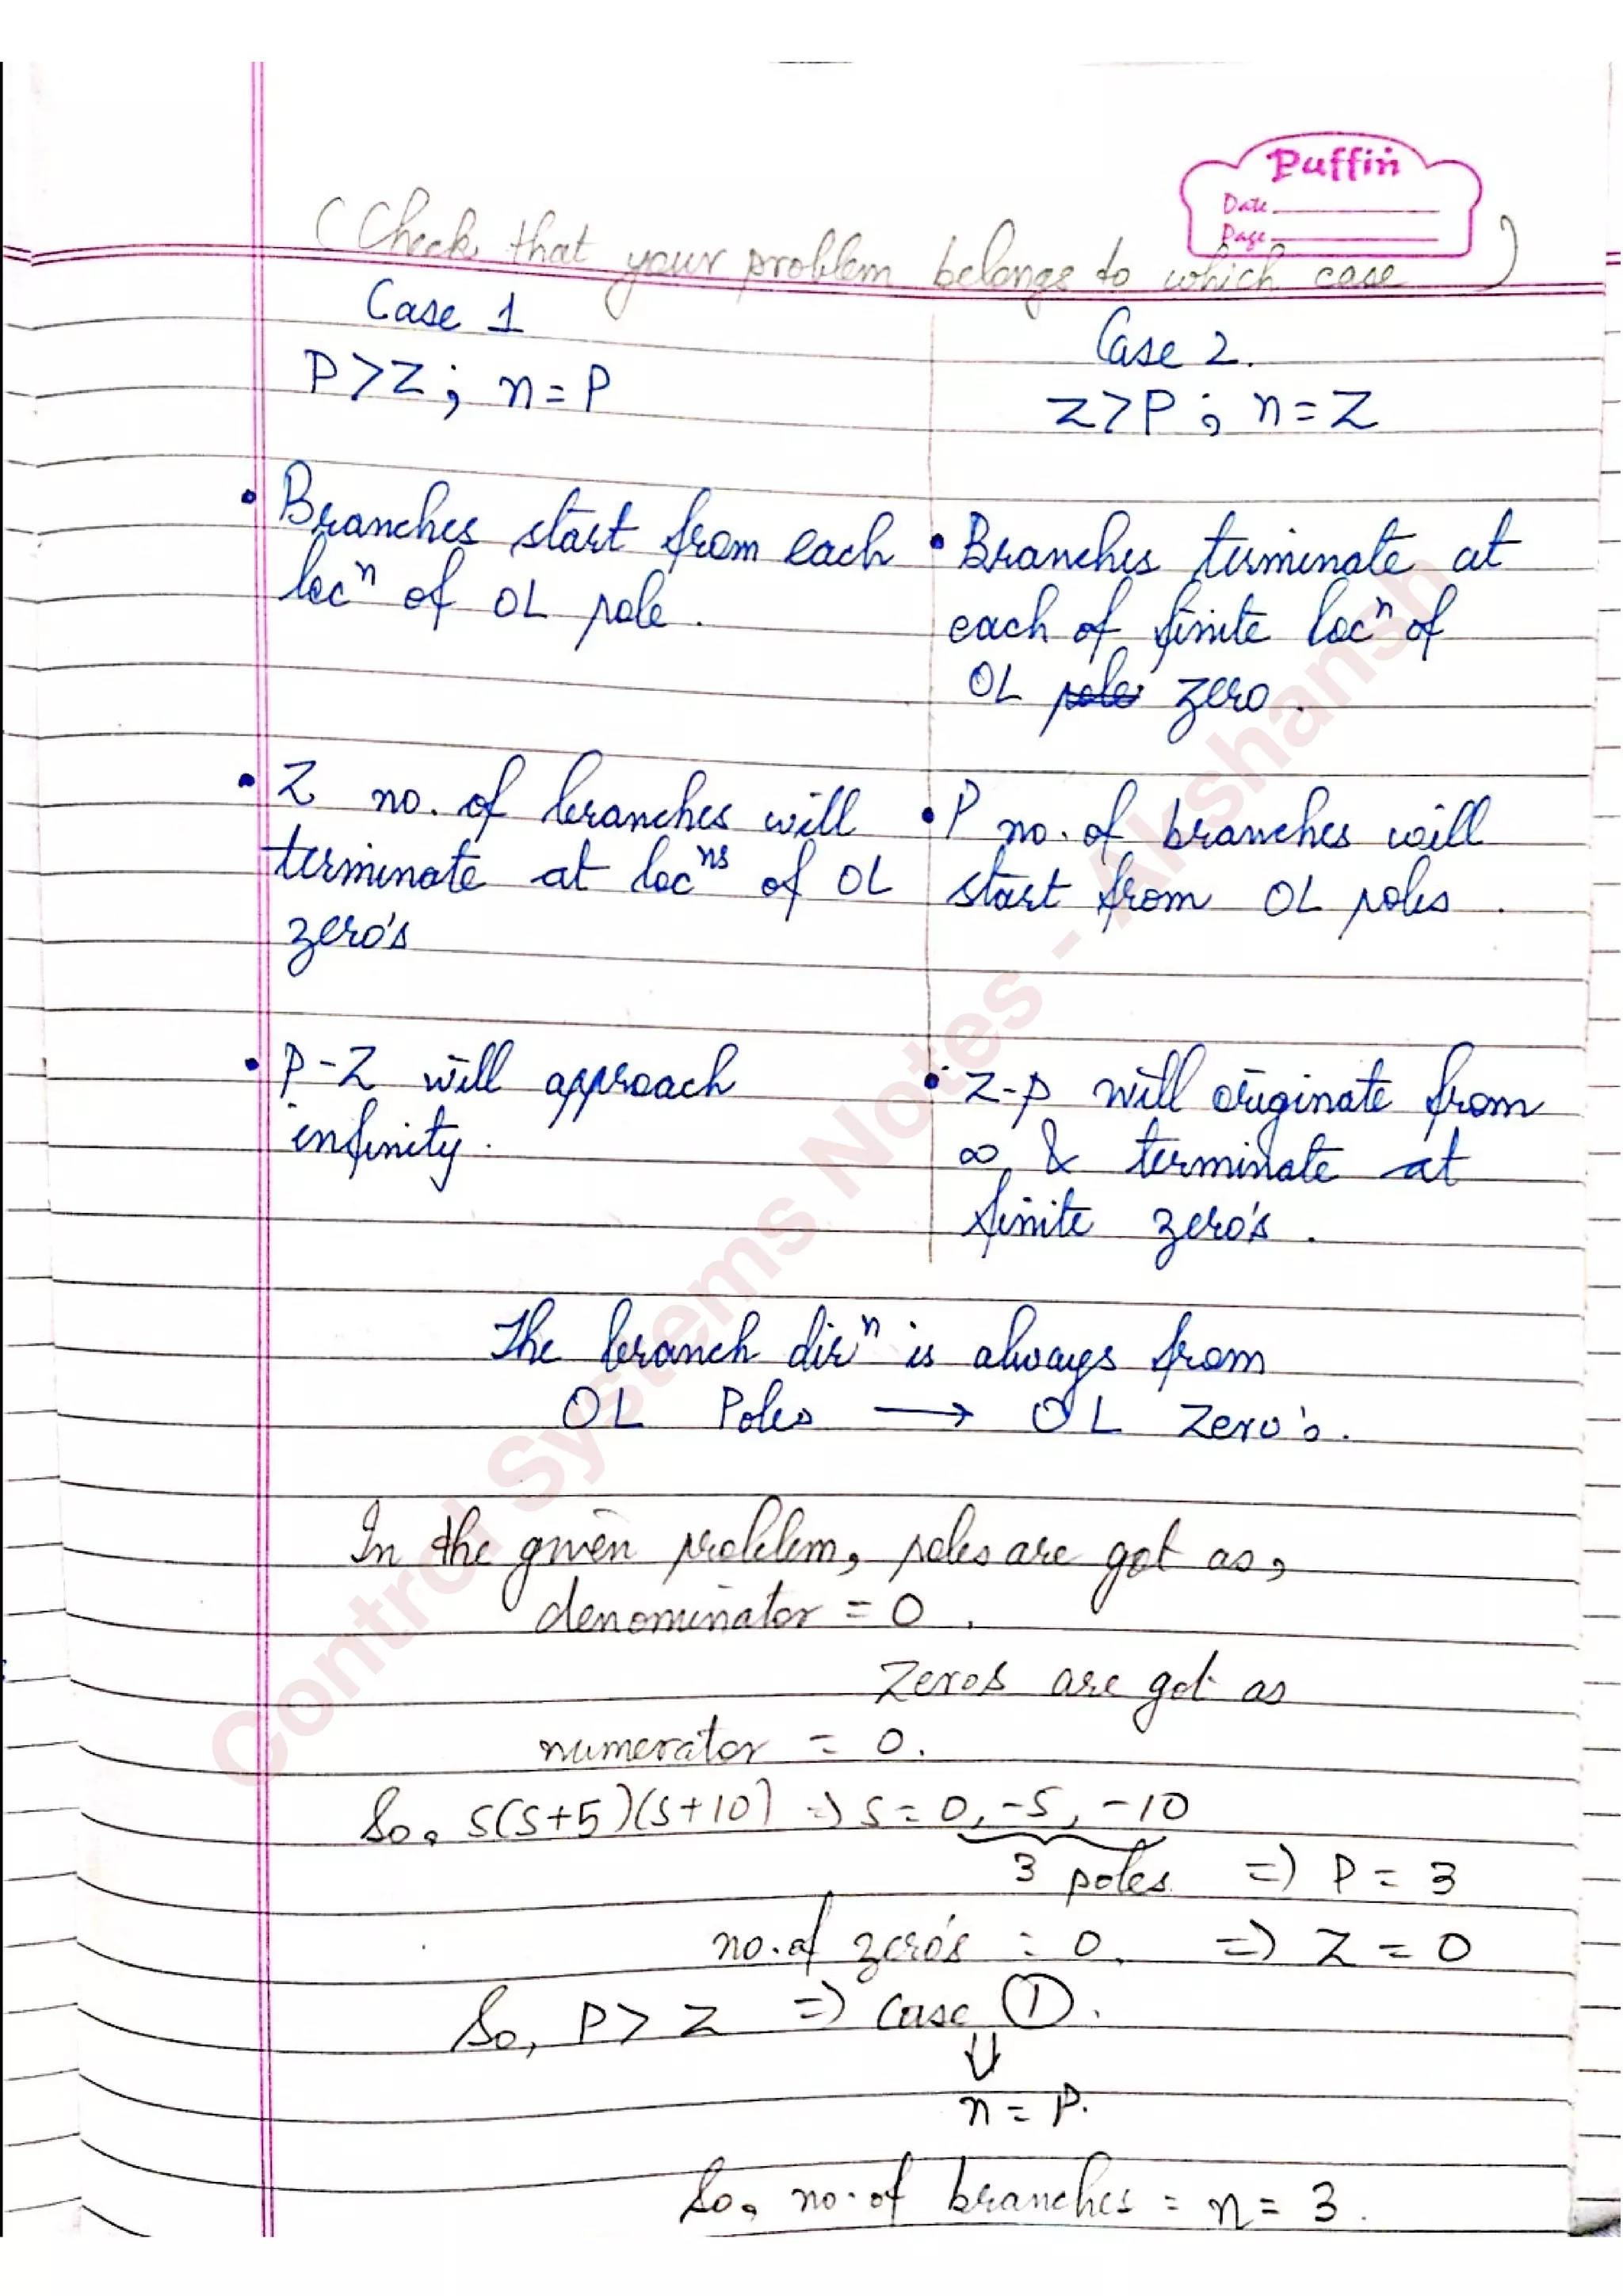 Puffin
Date
Page
(Check that your problem belongs to which case)
Case 1
P>Z ; n=P
• Branches start from each
locⁿ of OL pole.
• Z no. of branches will
terminate at locⁿˢ of OL
zero's
• P-Z will approach
infinity.
Case 2.
Z>P ; n=Z
• Branches terminate at
each of finite locⁿ of
OL pole zero.
• P no. of branches will
start from OL poles.
• Z-P will originate from
∞ & terminate at
finite zero's.
The branch dirⁿ is always from
OL Poles → OL Zero's.
In the given problem, poles are got as,
denominator = 0.
Zeros are got as
numerator = 0.
So, s(s+5)(s+10) => s = 0, -5, -10
3 poles => P = 3
no. of zero's = 0. => Z = 0
So, P > Z => Case ①.
⇓
n = P.
So, no. of branches = n = 3.
Control Systems Notes - Akshansh